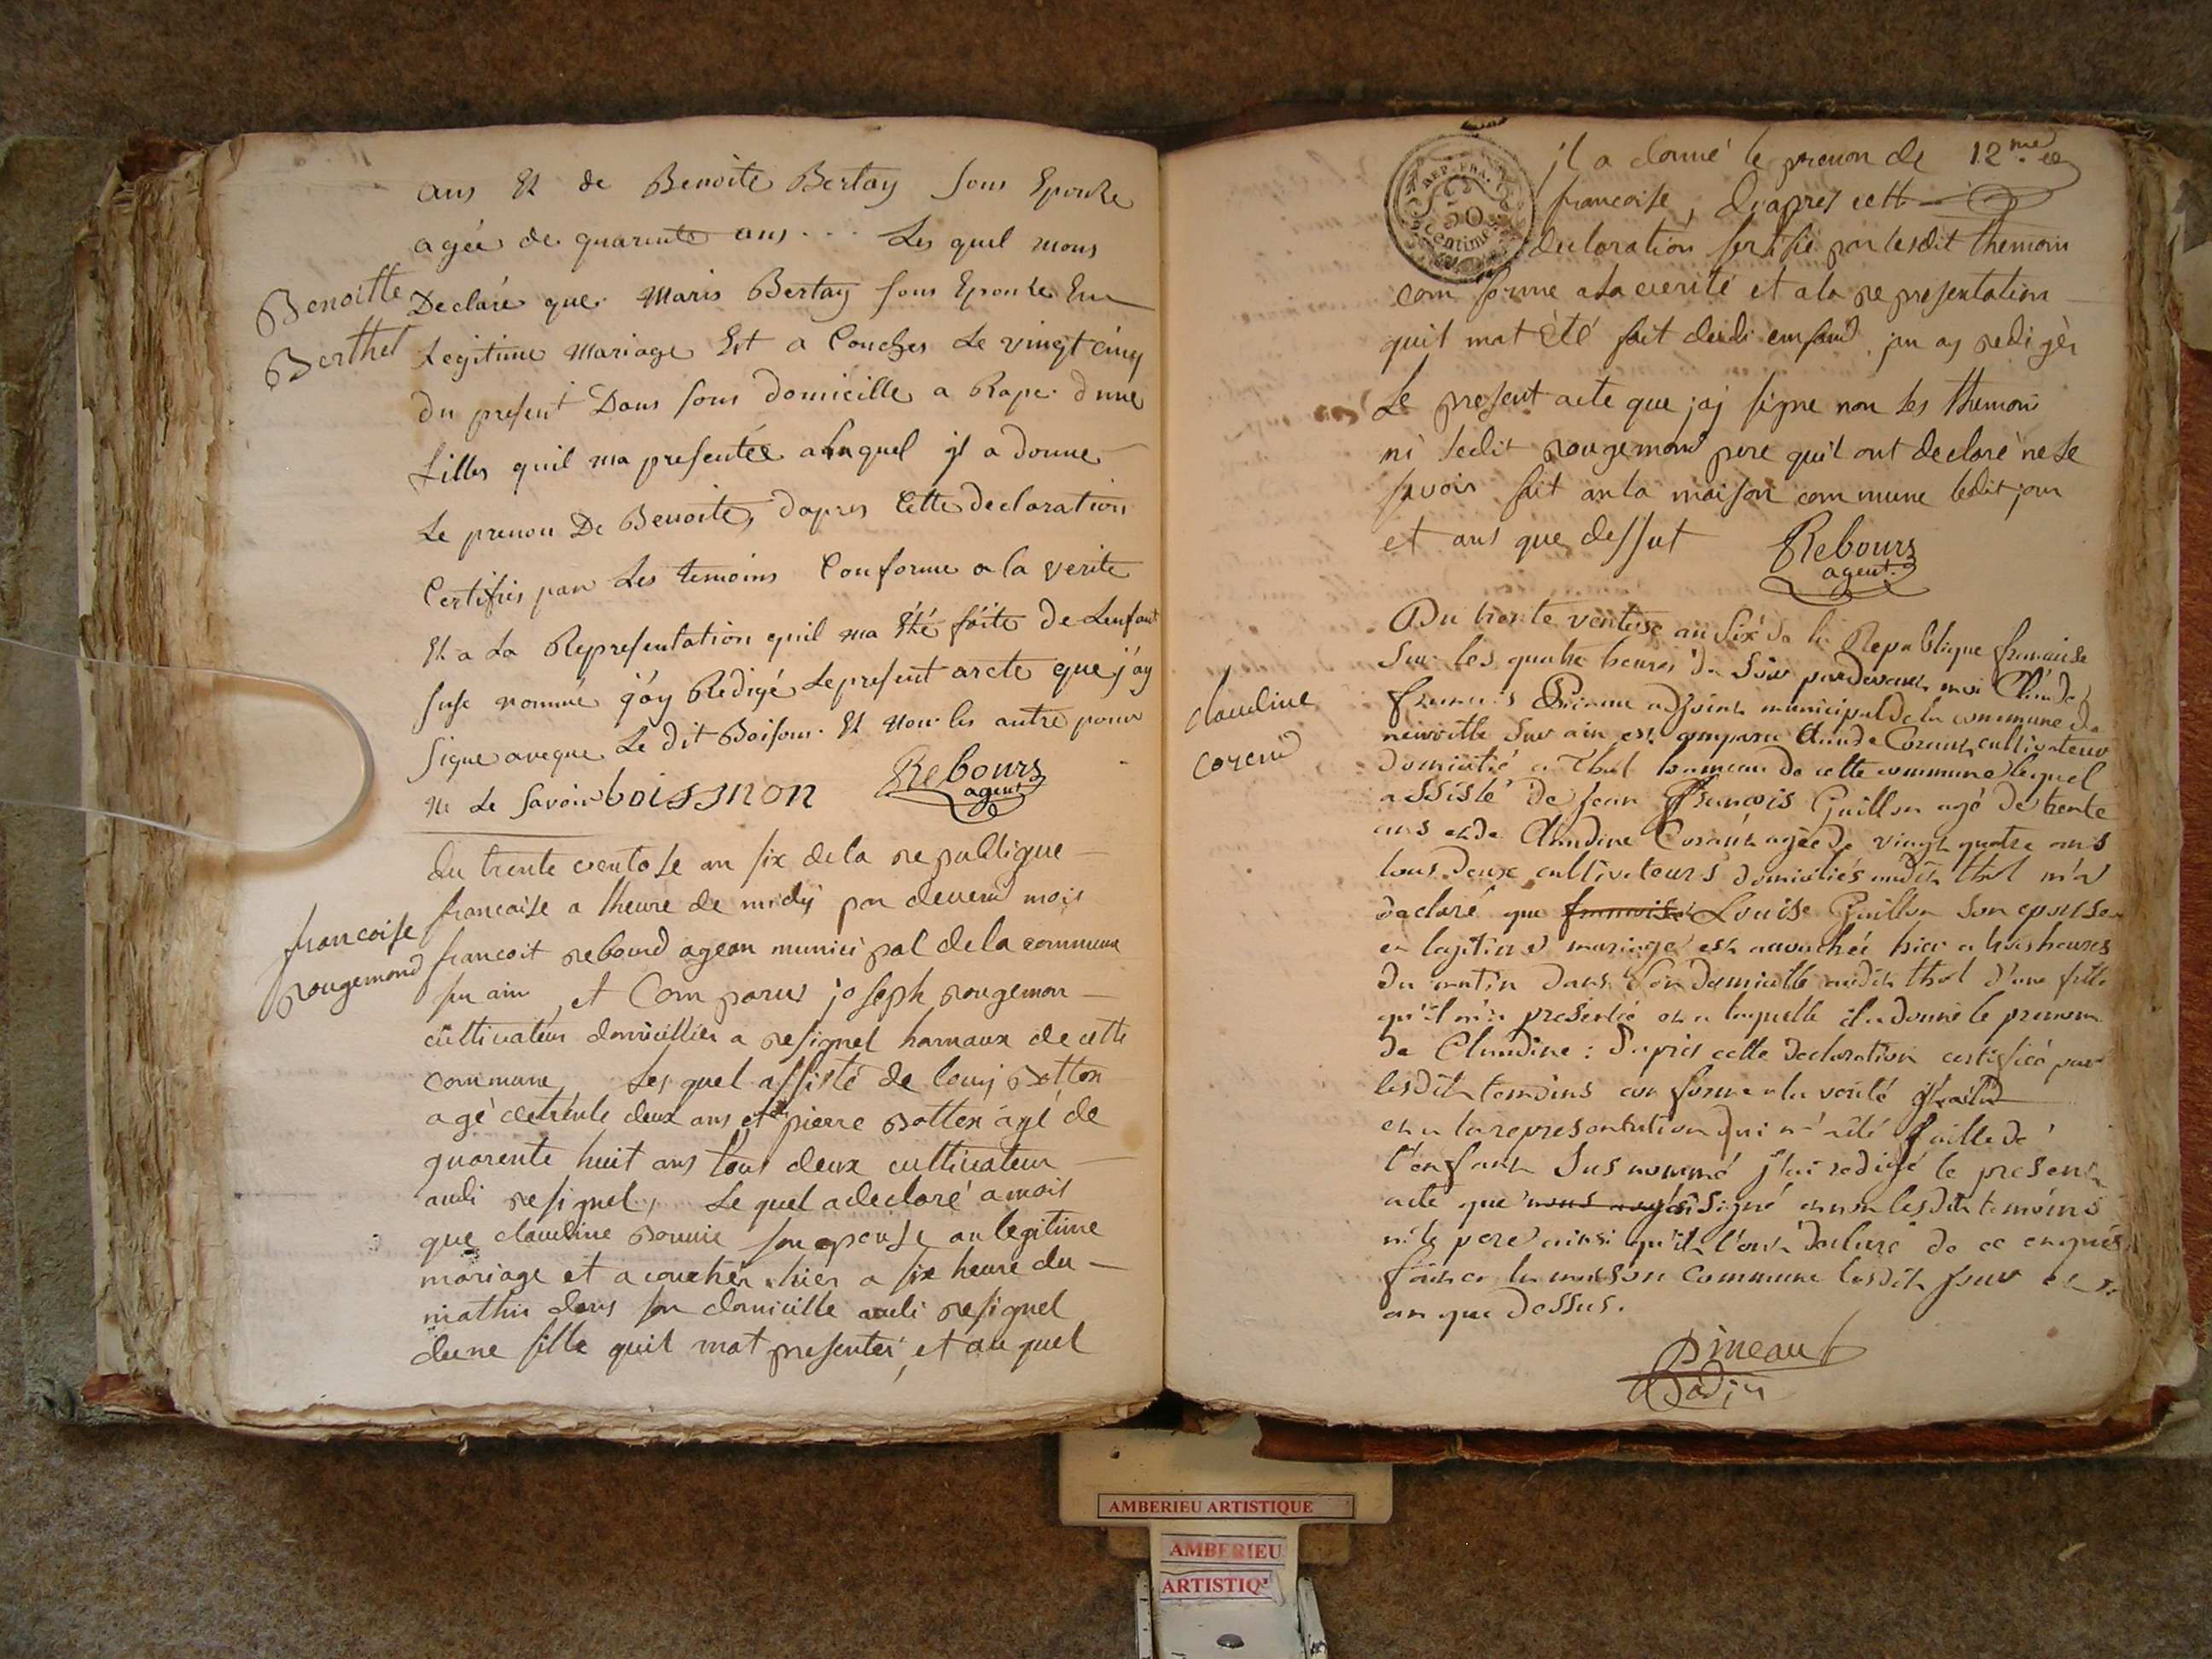 ans Et de Benoite Bertay sons Epouse
agée de quarente ans . . . Les quel mons
Benoitte
Berthet
Declaré que Maris Bertay sons Epouse En
Legitime Mariage Est a Couches Le vingt cinq
Du present Dans sons Domicille a Rape d'une
filles quil ma presentée a laquel jl a Donne
Le prenon De Benoite, Dapres Cette declaration
Certifies par Les temoins Conforme a la verite
Et a La Representation quil ma Eté faite De Lenfant
suse nommé j'ay Redigé Le present arcte que j'ay
signe aveque Le Dit Boisson Et non les autre pour
ne Le savoir boissnon Rebours
agent
du trente ventose an six de la republique
francoise a lheure de midy par devend mois
francoise
rougemond
francoit rebourd agean municipal de la commune
sur ain, et Comparus joseph rougemon
cultivateur domicillier a resignel hamaux de cette
commune Les quel assisté de louij Botton
agé de trente deux ans et de pierre Botton agé de
quarente huit ans tous deux cultivateur
audi resignel, Le quel a declaré a mois
que claudine bonnie son epouse an legitime
mariage et a coucher hier a six heure du
mathin dans son domicille audi resignel
deune fille quil mat presenter, et au quel
REP. FRA.
50
Centime
jl a donné le prenon de 12.me
francoise, d'apres cett
declaration sertifie par lesdit themoin
com forme a la verité et a la representation
quil mat été fait dudi emfand jan ay redigèr
Le present acte que jaj signe non les themoin
ni ledit rougemond pere quil ont declaré ne le
savoir fait an la maison commune ledit jour
et ans que dessut Rebours
agent
Du trente ventose an six de la Republique francaise
Sur les quatre heures du soir pardevant moi Claude
claudine
corend
francois Pineau adjoint municipal de la commune de
neuville sur ain est comparu Claude Corand cultivateur
domicilié a Thol hameau de cette commune lequel
assisté de jean François Guillon agé de trente
ans et de Claudine Corand agée de vingt quatre ans
tous deux cultivateurs domiciliés audit thol m'a
declaré que francoise Louise Guillon son epouse
en legitime mariage est accouchée hier a trois heures
du matin dans son domicille audit thol d'une fille
qu'il m'a presentée et a laquelle il a donné le prenom
de Claudine : d'apres cette declaration certifiée par
lesdits temoins conforme a la verité
et a la representation qui m'a été faitte de
l'enfant sus nommé j'ai redigé le present
acte que nous avons signé et non lesdits temoins
ni le pere ainsi qu'ils l'ont declaré de ce enquis
fait a la maison commune lesdits jour et
an que dessus.
Pineau
Bodin
AMBERIEU ARTISTIQUE
AMBERIEU
ARTISTIQ